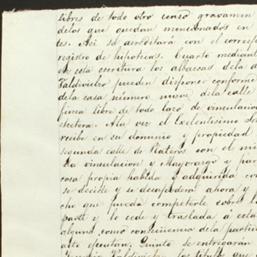 libres de todo otro censo gravamen
delos que quedan mencionados en
tes. Asi se acreditará con el corresp
registro de hipotecas. Cuarto mediant
de esta escritura los albaceas dela d
Valdivielso pueden disponer conforme
dela casa número nueve dela calle
finca libre de todo lazo de vinculacion
etcetera. Ala vez el Excelentisimo
recibe en su dominio y propiedad
segunda calle de Plateros con el mi
la vinculacion y Mayorazgo y par
cosa propia habida y adquirida con
se desiste y se desapodera ahora y
cho que pueda competirle sobre l
parte y lo cede y traslada á esta
alguna, como consecuencia dela
este ejecutan. Quinto se entregaran
los titulos que